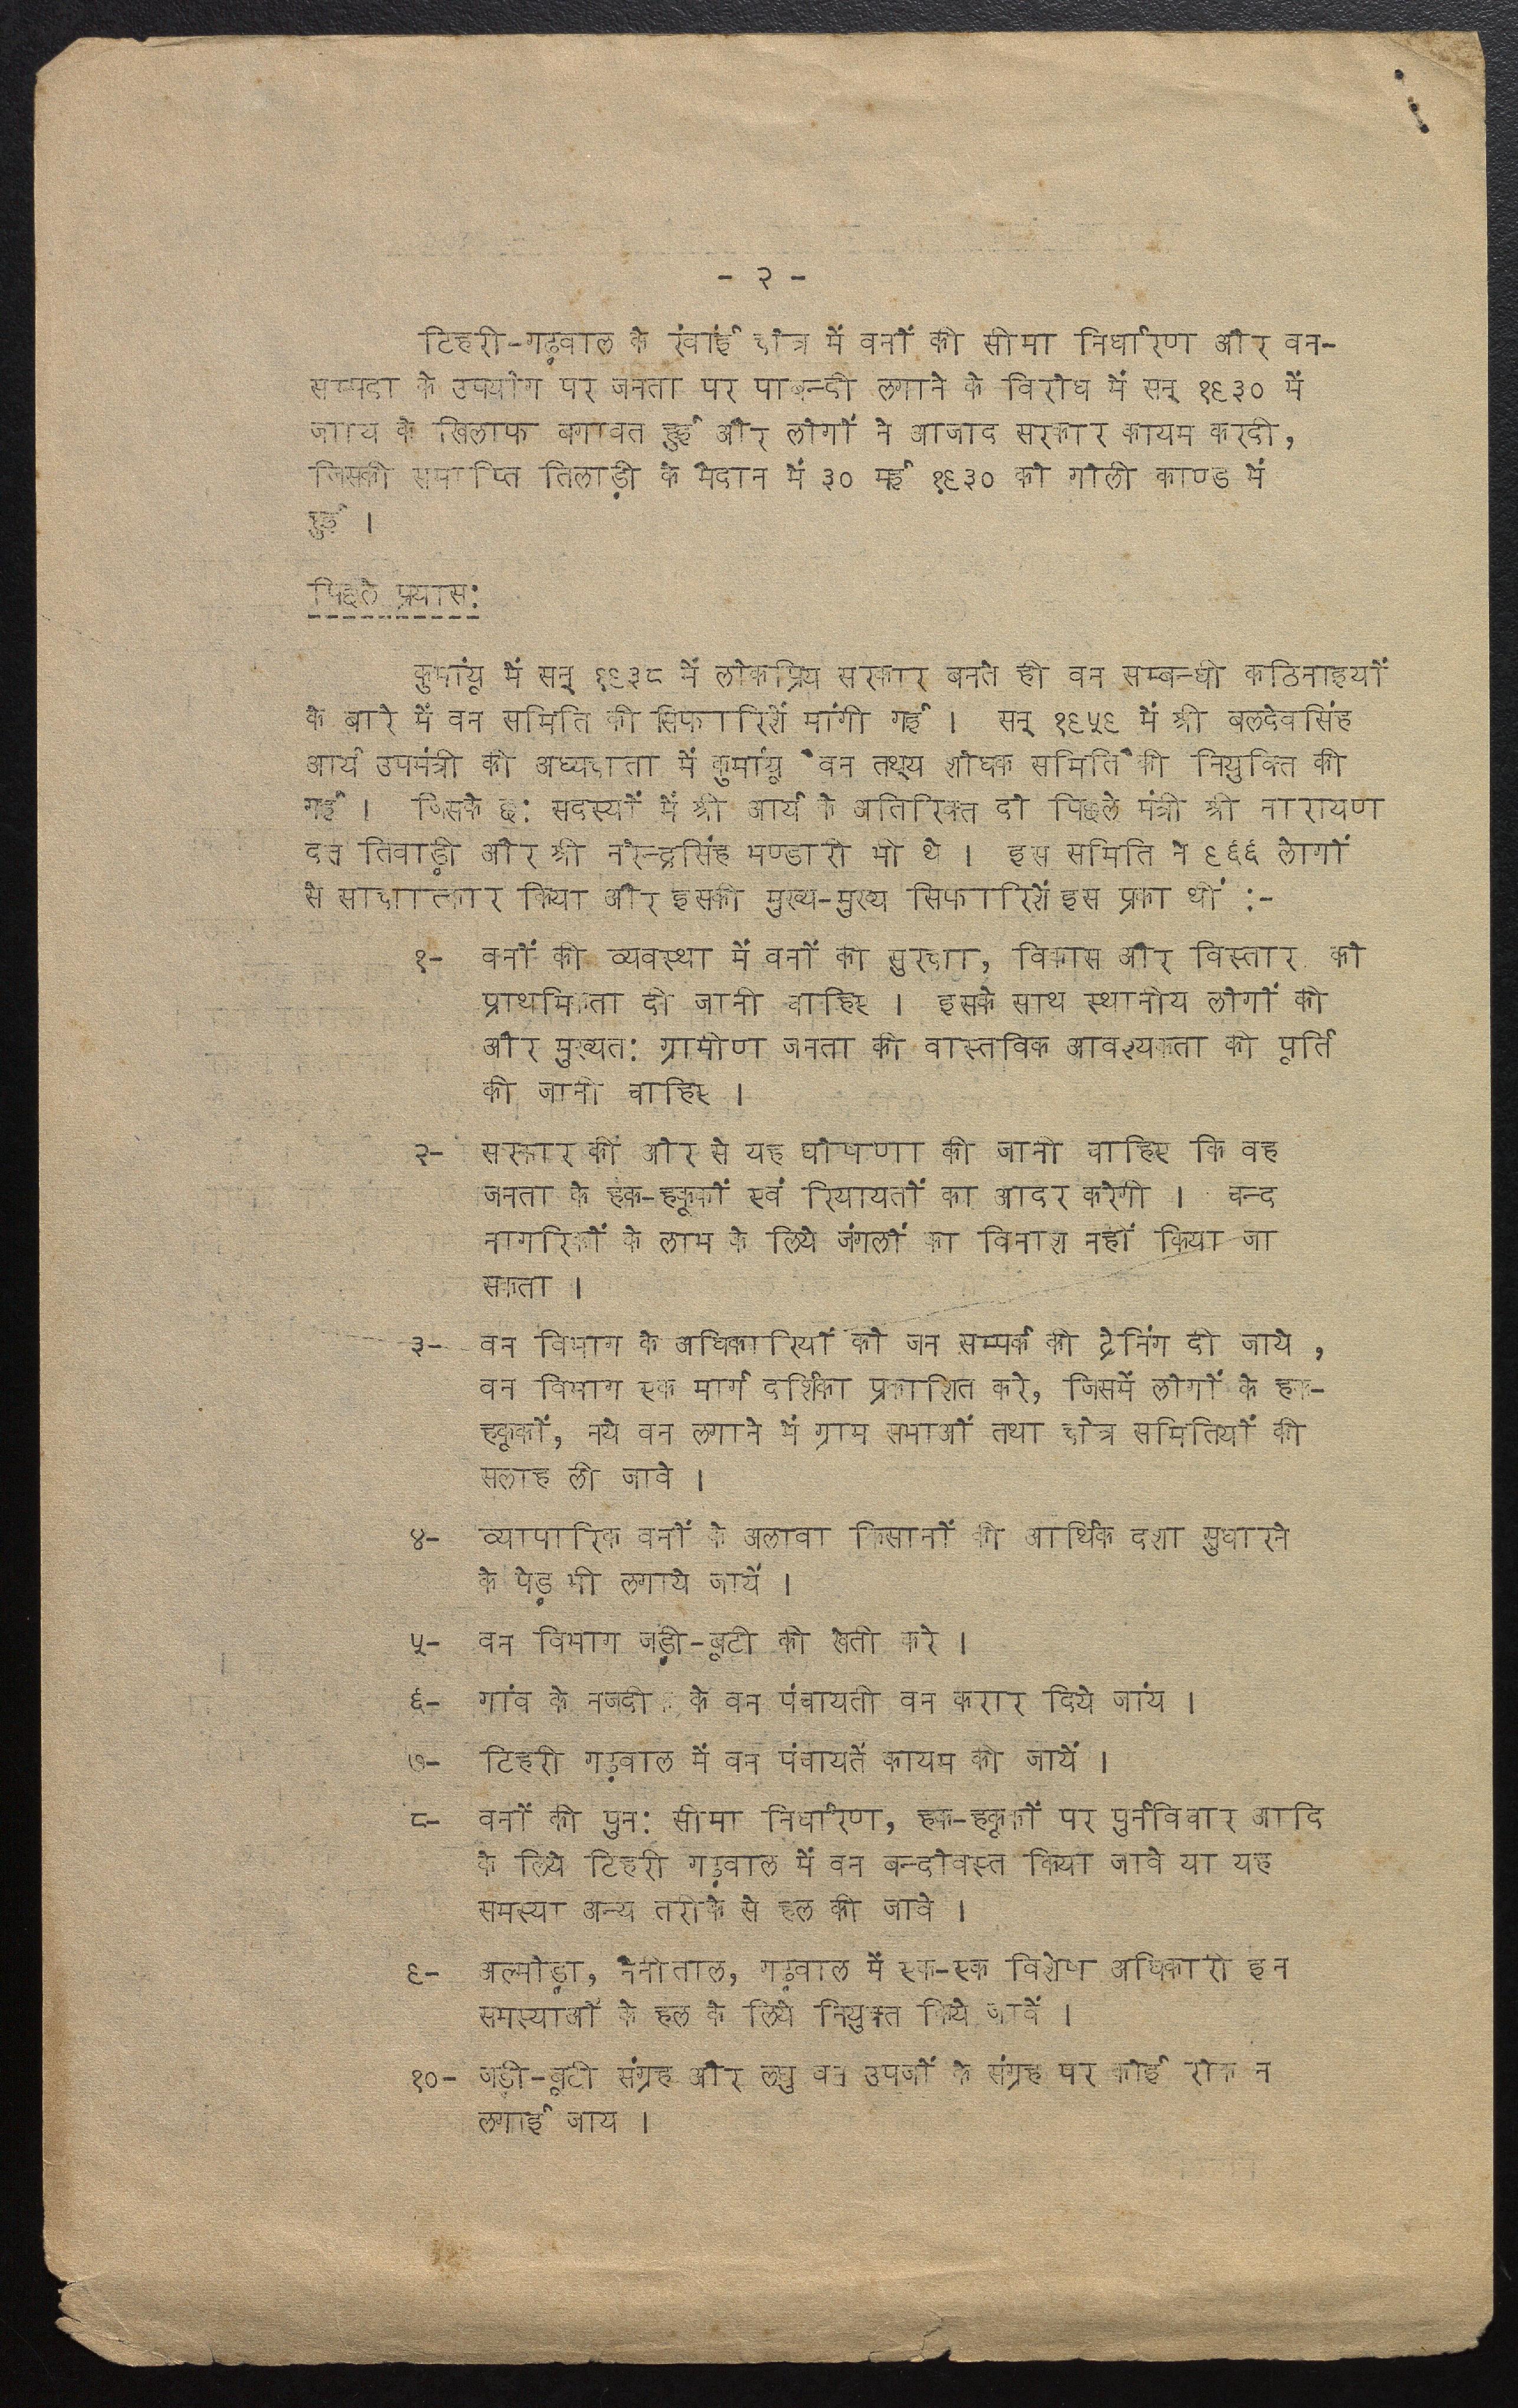 - २ -
टिहरी-गढ़वाल के रंवाई क्षेत्र में वनों की सीमा निर्धारण और वन-
सम्पदा के उपयोग पर जनता पर पाबन्दी लगाने के विरोध में सन् १९३० में
के खिलाफ बगावत हुई और लोगों ने आजाद सरकार कायम करदी,
जिसकी समाप्ति तिलाड़ी के मैदान में ३० मई १९३० को गोली काण्ड में
हुई ।
पिछले प्रयास:
कुमांयू में सन् १९३८ में लोकप्रिय सरकार बनते ही वन सम्बन्धी कठिनाइयों
के बारे में वन समिति की सिफारिशें मांगी गई । सन् १९५९ में श्री बलदेवसिंह
आर्य उपमंत्री की अध्यक्षता में कुमांयू "वन तथ्य शोधक समिति" की नियुक्ति की
गई । जिसके छ: सदस्यों में श्री आर्य के अतिरिक्त दो पिछले मंत्री श्री नारायण
दत्त तिवाड़ी और श्री नरेन्द्रसिंह भण्डारी भी थे । इस समिति ने ९६६ लोगों
से साक्षात्कार किया और इसकी मुख्य-मुख्य सिफारिशें इस प्रका थीं :-
१- वनों की व्यवस्था में वनों की सुरक्षा, विकास और विस्तार को
प्राथमिकता दी जानी चाहिए । इसके साथ स्थानीय लोगों की
और मुख्यत: ग्रामीण जनता की वास्तविक आवश्यकता की पूर्ति
की जानी चाहिए ।
२- सरकार की ओर से यह घोषणा की जानी चाहिए कि वह
जनता के हक-हकूकों एवं रियायतों का आदर करेगी । चन्द
नागरिकों के लाभ के लिये जंगलों का विनाश नहीं किया जा
सकता ।
३- वन विभाग के अधिकारियों को जन सम्पर्क की ट्रेनिंग दी जाये ,
वन विभाग एक मार्ग दर्शिका प्रकाशित करे, जिसमें लोगों के हक-
हकूकों, नये वन लगाने में ग्राम सभाओं तथा क्षेत्र समितियों की
सलाह ली जावे ।
४- व्यापारिक वनों के अलावा किसानों की आर्थिक दशा सुधारने
के पेड़ भी लगाये जायें ।
५- वन विभाग जड़ी-बूटी की खेती करे ।
६- गांव के नजदीक के वन पंचायती वन करार दिये जांय ।
७- टिहरी गढ़वाल में वन पंचायतें कायम की जायें ।
८- वनों की पुन: सीमा निर्धारण, हक-हकूकों पर पुर्नविचार आदि
के लिये टिहरी गढ़वाल में वन बन्दोवस्त किया जावे या यह
समस्या अन्य तरीके से हल की जावे ।
९- अल्मोड़ा, नैनीताल, गढ़वाल में एक-एक विशेष अधिकारी इन
समस्याओं के हल के लिये नियुक्त किये जावें ।
१०- जड़ी-बूटी संग्रह और लघु वन उपजों के संग्रह पर कोई रोक न
लगाई जाय ।